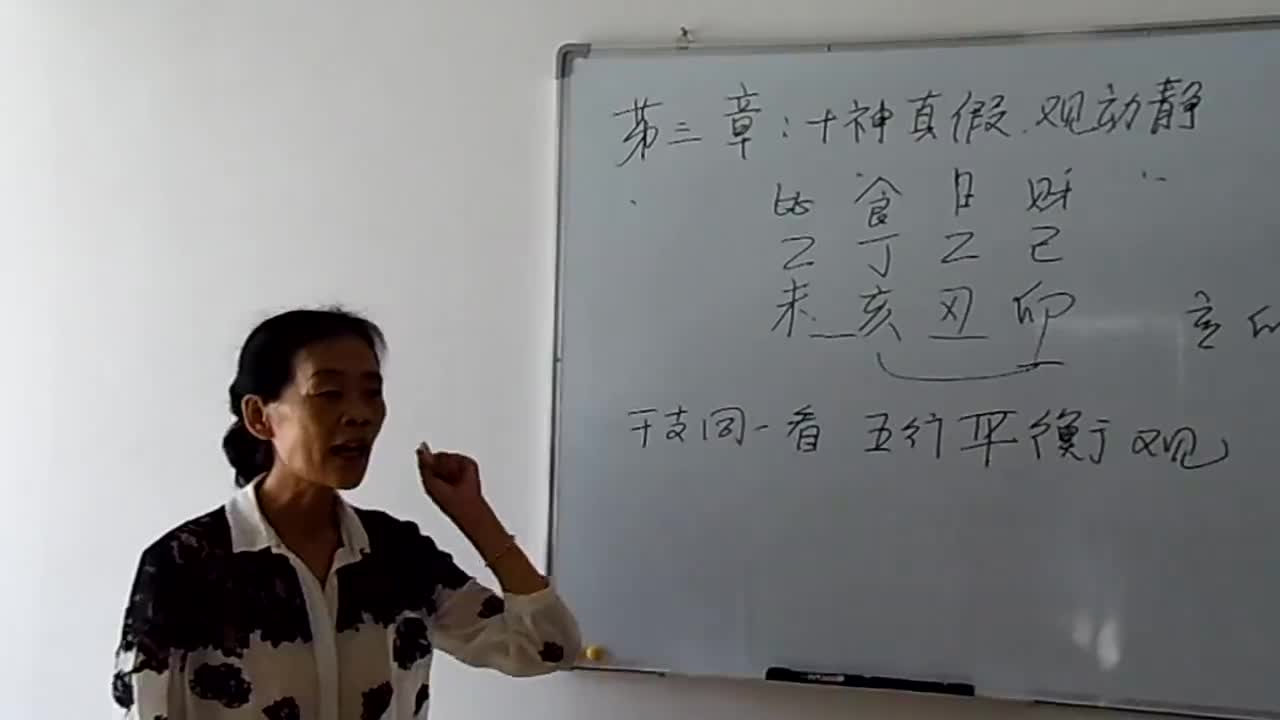 第三章：十神真假观动静
比 食 日 财
乙 丁 乙 己
未 亥 丑 卯 亥 卯
干支同一看 五行平衡于观